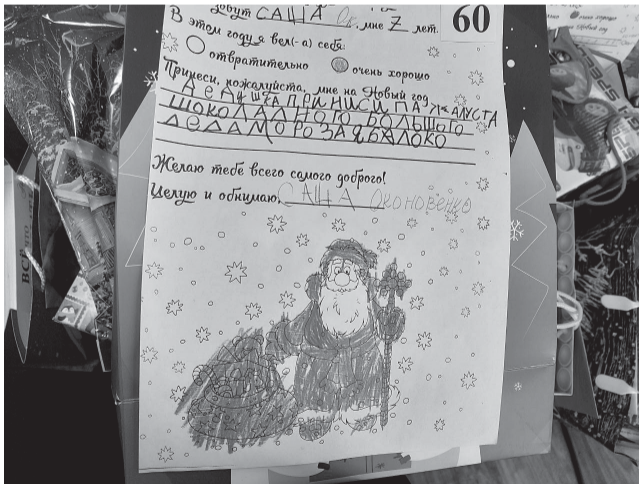 зовут САША Ок. мне 7 лет.
60
В этом году я вел(-а) себя:
отвратительно очень хорошо
Принеси, пожалуйста, мне на Новый год
ДЕДУШКА ПРИНИСИ ПАЖАЛУСТА
ШОКОЛАДНОГО БОЛЬШОГО
ДЕДАМОРОЗА ЯБАЛОКО
Желаю тебе всего самого доброго!
Целую и обнимаю, САША Околовенко
ВСЁ